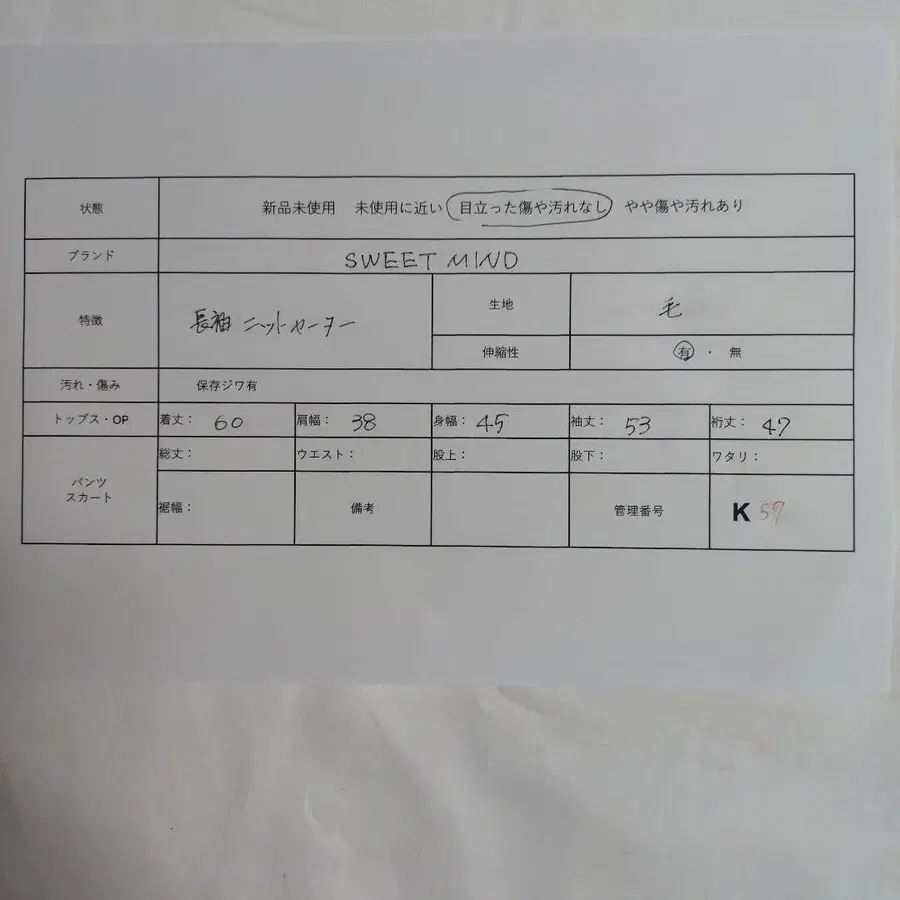 状態 新品未使用 未使用に近い 目立った傷や汚れなし やや傷や汚れあり
ブランド SWEET MIND
特徴 長袖 ニットセーター 生地 毛
伸縮性 有 ・ 無
汚れ・傷み 保存ジワ有
トップス・OP 着丈： 60 肩幅： 38 身幅： 45 袖丈： 53 裄丈： 47
パンツ
スカート
総丈： ウエスト： 股上： 股下： ワタリ：
裾幅： 備考 管理番号 K 57